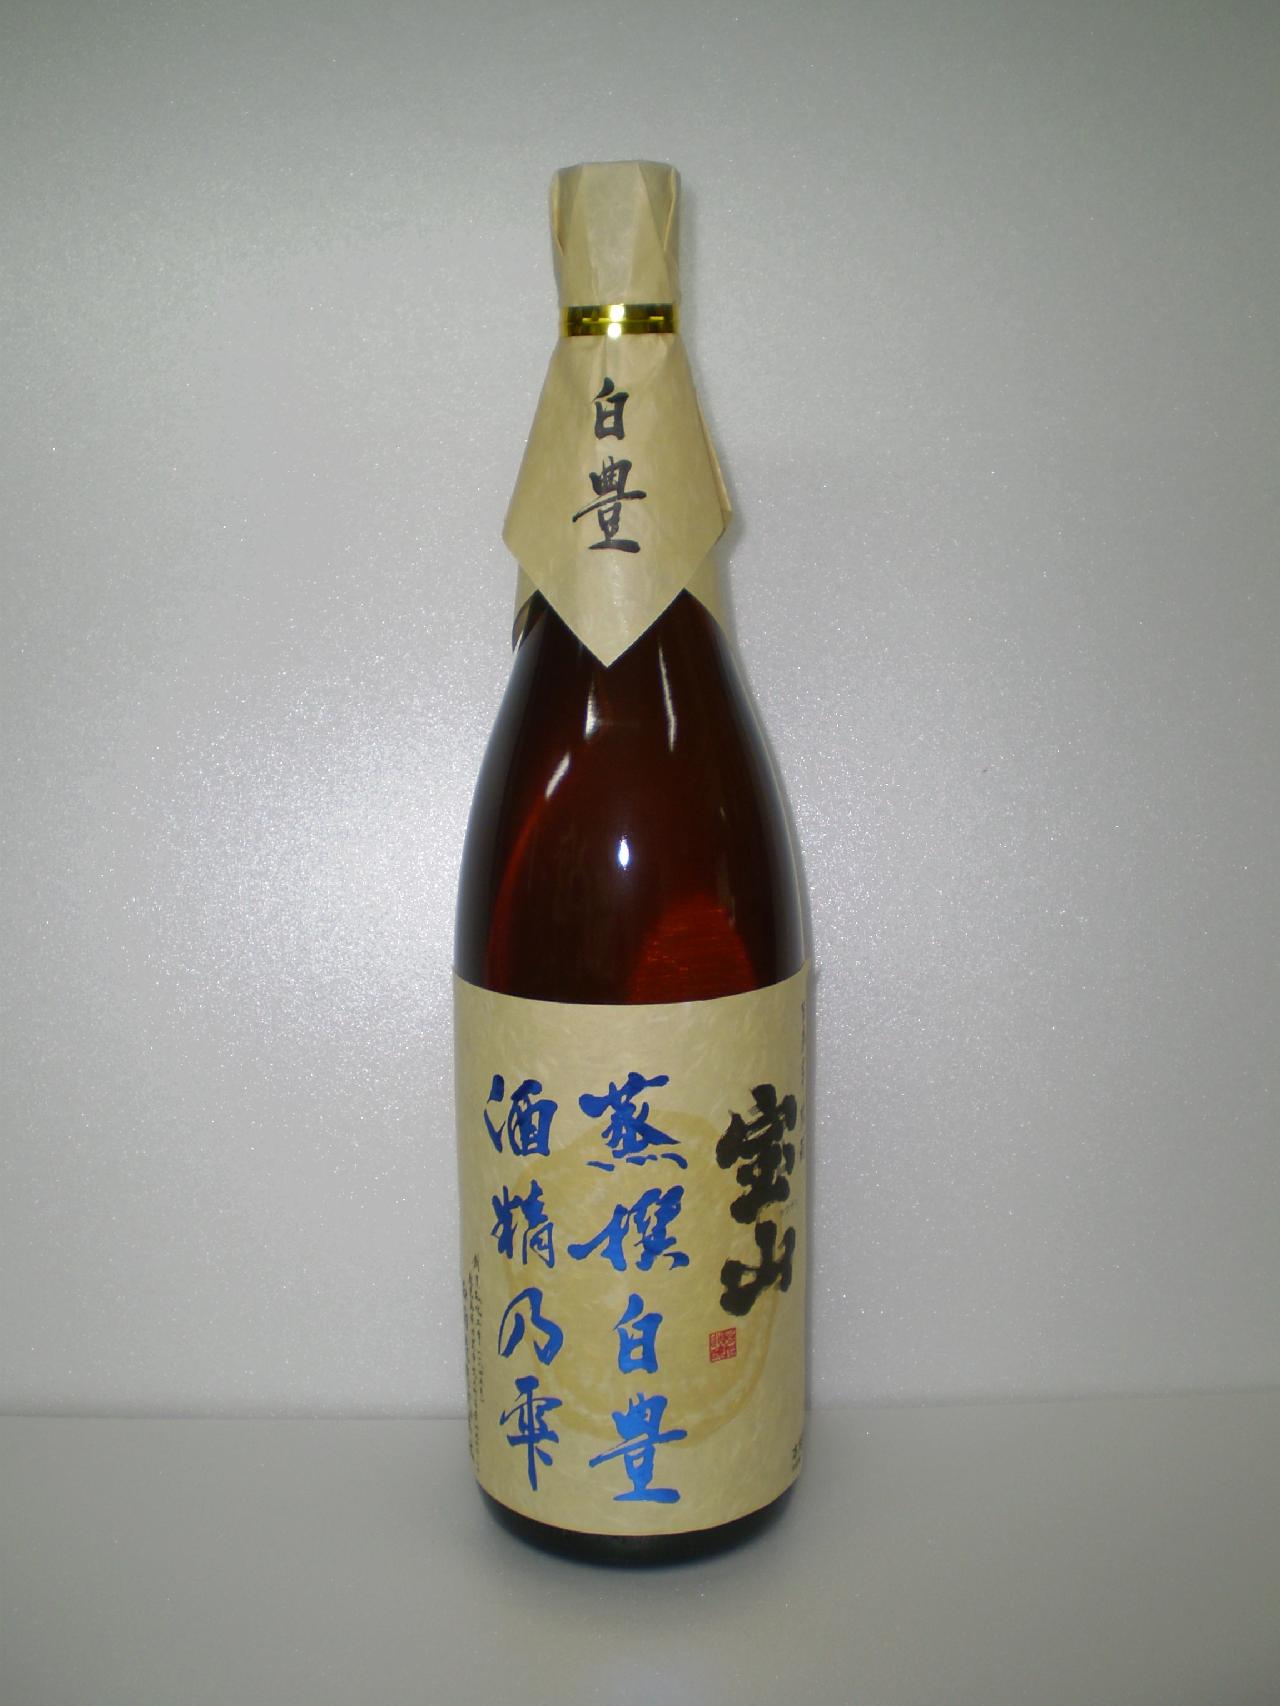 白豊
宝山
蒸撰白豊
酒精乃雫